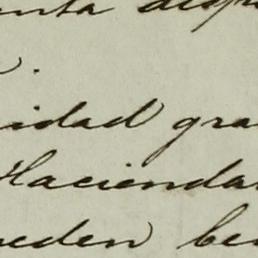 enta dispo
idad gra
Hacienda
ueden be